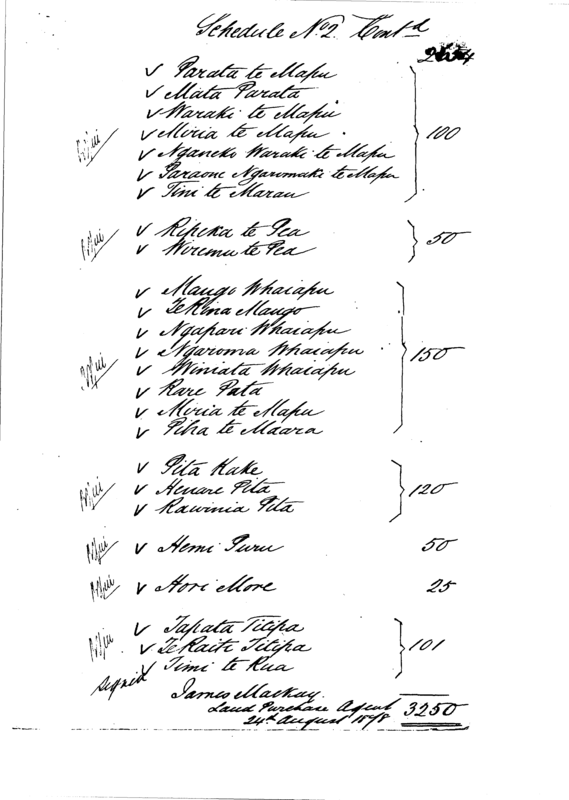 Schedule No 2. Contd
✓ Parata te Mapu
✓ Mata Parata
✓ Waraki te Mapu
✓ Miria te Mapu . 100
✓ Nganeko Waraki te Mapu
✓ Paraone Ngaromaki te Mapu
✓ Tini te Marau
✓ Ripeka te Pea
✓ Wiremu te Pea 50
✓ Maugo Whaiapu
✓ Te Rina Maugo
✓ Ngapari Whaiapu
✓ Ngaroma Whaiapu 150
✓ Winiata Whaiapu
✓ Rare Pata
✓ Miria te Mapu
✓ Piha te Maara
✓ Pita Kake
✓ Henare Pita 120
✓ Rawinia Pita
✓ Hemi Puru 50
✓ Hori More 25
✓ Tapata Titipa
✓ Te Raiti Titipa 101
✓ Timi te Rua
signed James Mackay
Land Purchase Agent 3250
24th August 1878